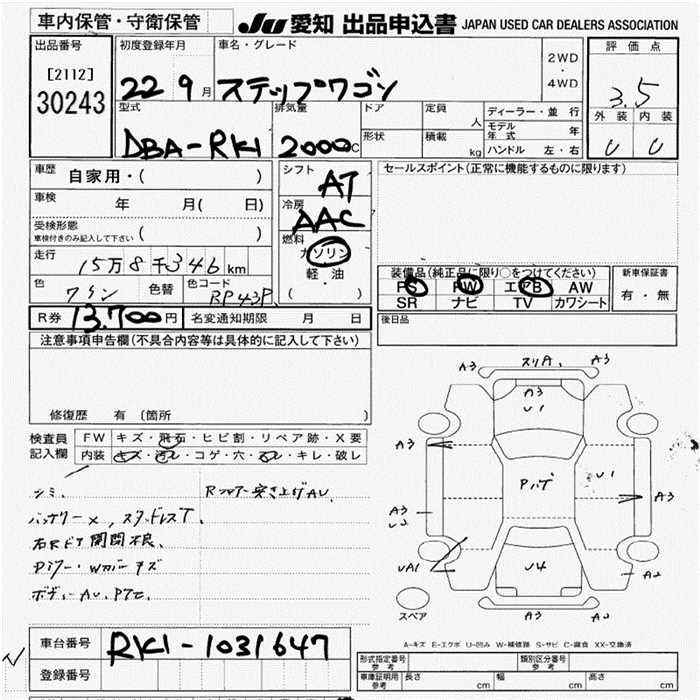 車内保管・守衛保管
JU 愛知 出品申込書 JAPAN USED CAR DEALERS ASSOCIATION
出品番号
[2112]
30243
初度登録年月
22 9月
車名・グレード
ステップワゴン
2WD
・
4WD
評価点
3.5
外装 内装
U U
型式
DBA-RK1
排気量
2000 C
ドア
形状
定員 人
積載 kg
ディーラー・並行
モデル年式 年
ハンドル 左・右
車歴
自家用・( )
車検
年 月( 日)
受検形態
車検付きのみ記入して下さい ( )
走行
15万8千346km
色
ワイン
色替
色コード
RP43P
シフト
AT
冷房
AAC
燃料
ガソリン
軽・油
( ・ )
セールスポイント(正常に機能するものに限ります)
装備品(純正品に限り○をつけてください)
PS PW エアB AW
SR ナビ TV カワシート
新車保証書
有・無
後日品
R券 13.700円
名変通知期限 月 日
注意事項申告欄(不具合内容等は具体的に記入して下さい)
修復歴 有(箇所
検査員
記入欄
FW キズ・飛石・ヒビ割・リペア跡・X要
内装 キズ・汚レ・コゲ・穴・スレ・キレ・破レ
シミ、
Rフロアー突き上げAU.
バッテリーX,スタッドレスT.
右Rドア開閉不良.
ボディーAU.
A3 スリA. A3
A3
U1
A3
Pハゲ
U1
A3
A3
U2
UA1
U4
A2
A3 A2
スペア
A-キズ E-エクボ U-凹み W-補修跡 S-サビ C-腐食 XX-交換済
車台番号
RK1-1031647
登録番号
形式指定番号
参考
類別区分番号
参考
車庫証明用
参考
長さ cm
幅 cm
高さ cm